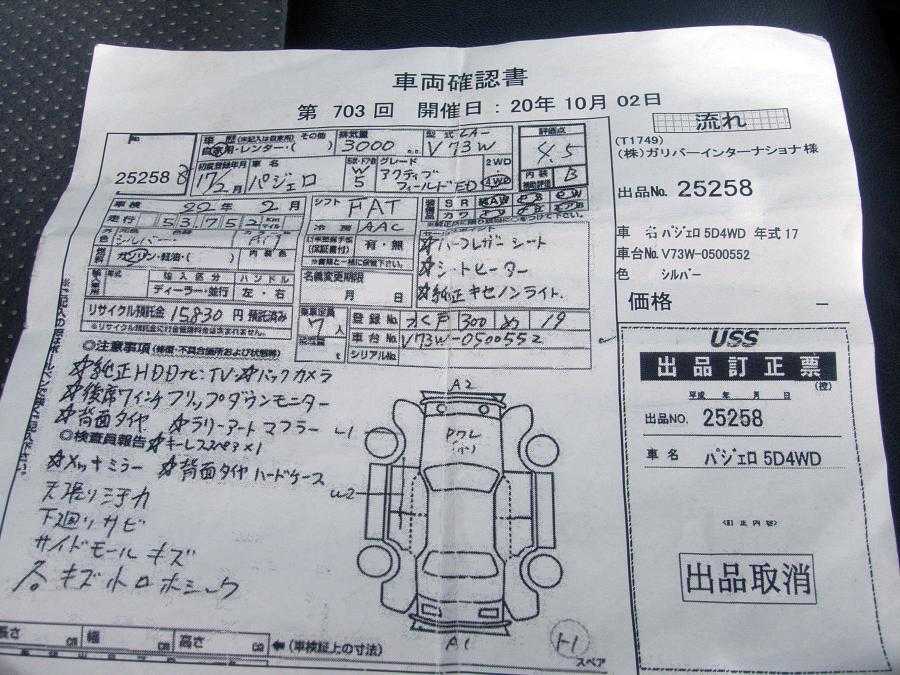 車両確認書
第 703 回 開催日 : 20年 10月 02日
流れ
(T1749)
(株)ガリバーインターナショナ様
出品No. 25258
車 名 パジェロ 5D4WD 年式 17
車台No. V73W-0500552
色 シルバー
価格 －
No.
25258
車歴 (未記入は自家用) その他
自家用・レンター・( )
排気量
3000 c.c.
型式 LA-
V73W
評価点
4.5
内装
補助評価 B
初度登録年月
17/2月
車名
パジェロ
ドア・形状
W
5
グレード
アクティブ
フィールドED
2WD
4WD
車検 22年 2月
走行 53,752 Km
マイル
シフト FAT
冷房 AAC
SR AW
カワ
色 シルバー
ガソリン・軽油・( )
内装色
(保証書付) 有・無
※書類と一緒に保管下さい。
輸入区分 ハンドル
ディーラー・並行 左・右
名義変更期限
月 日
☆ハーフレザーシート
☆シートヒーター
☆純正キセノンライト.
リサイクル預託金 15830 円 預託済み
※リサイクル預託金に預託資金は含まれません。
乗車定員
7人
登録No. 水戸 300 め 19
車台No. V73W-0500552
シリアルNo.
◎注意事項 (修復・不具合箇所および状態等)
☆純正HDDナビTV ☆バックカメラ
☆後席7インチフリップダウンモニター
☆背面タイヤ ☆ラリーアートマフラー
◎検査員報告 ☆キーレススペア×1
☆メッキミラー ☆背面タイヤハードケース
天張りシミ
下廻りサビ
サイドモールキズ
各キズ
A2
L1
U2
A1
H1
スペア
長さ cm 幅 cm 高さ cm ← (車検証上の寸法)
USS
出品訂正票
(控)
平成 年 月 日
出品NO. 25258
車 名 パジェロ 5D4WD
(訂正内容)
出品取消